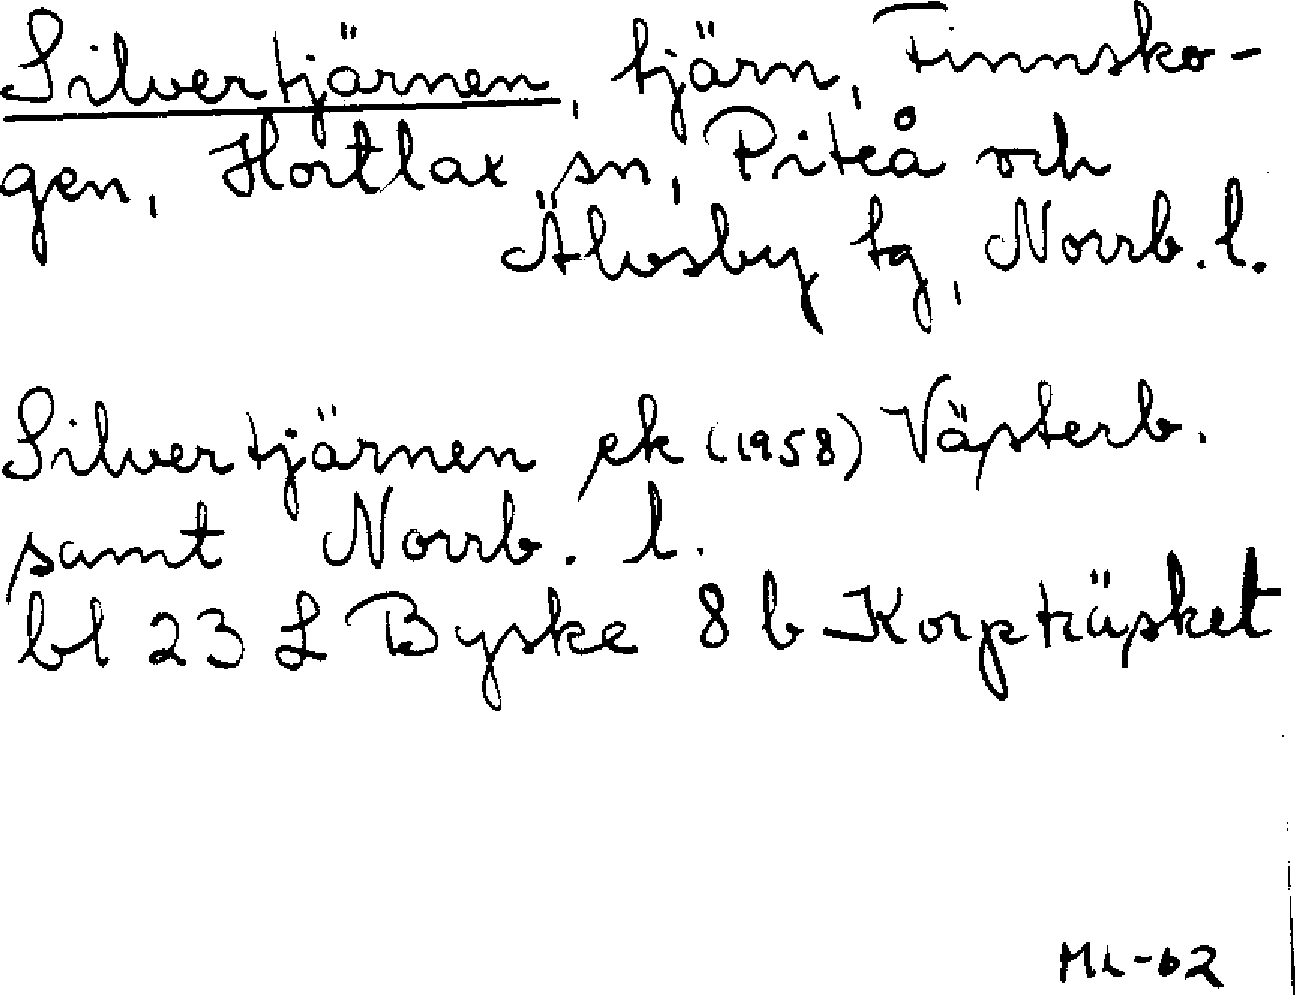 Silvertjärnen, tjärn, Finnsko-
gen, Hortlax sn, Piteå och
Älvsby tg, Norrb. l.
Silvertjärnen ek (1958) Västerb.
samt Norrb. l.
bl 23 L Byske 8 b Korpträsket
ML-62